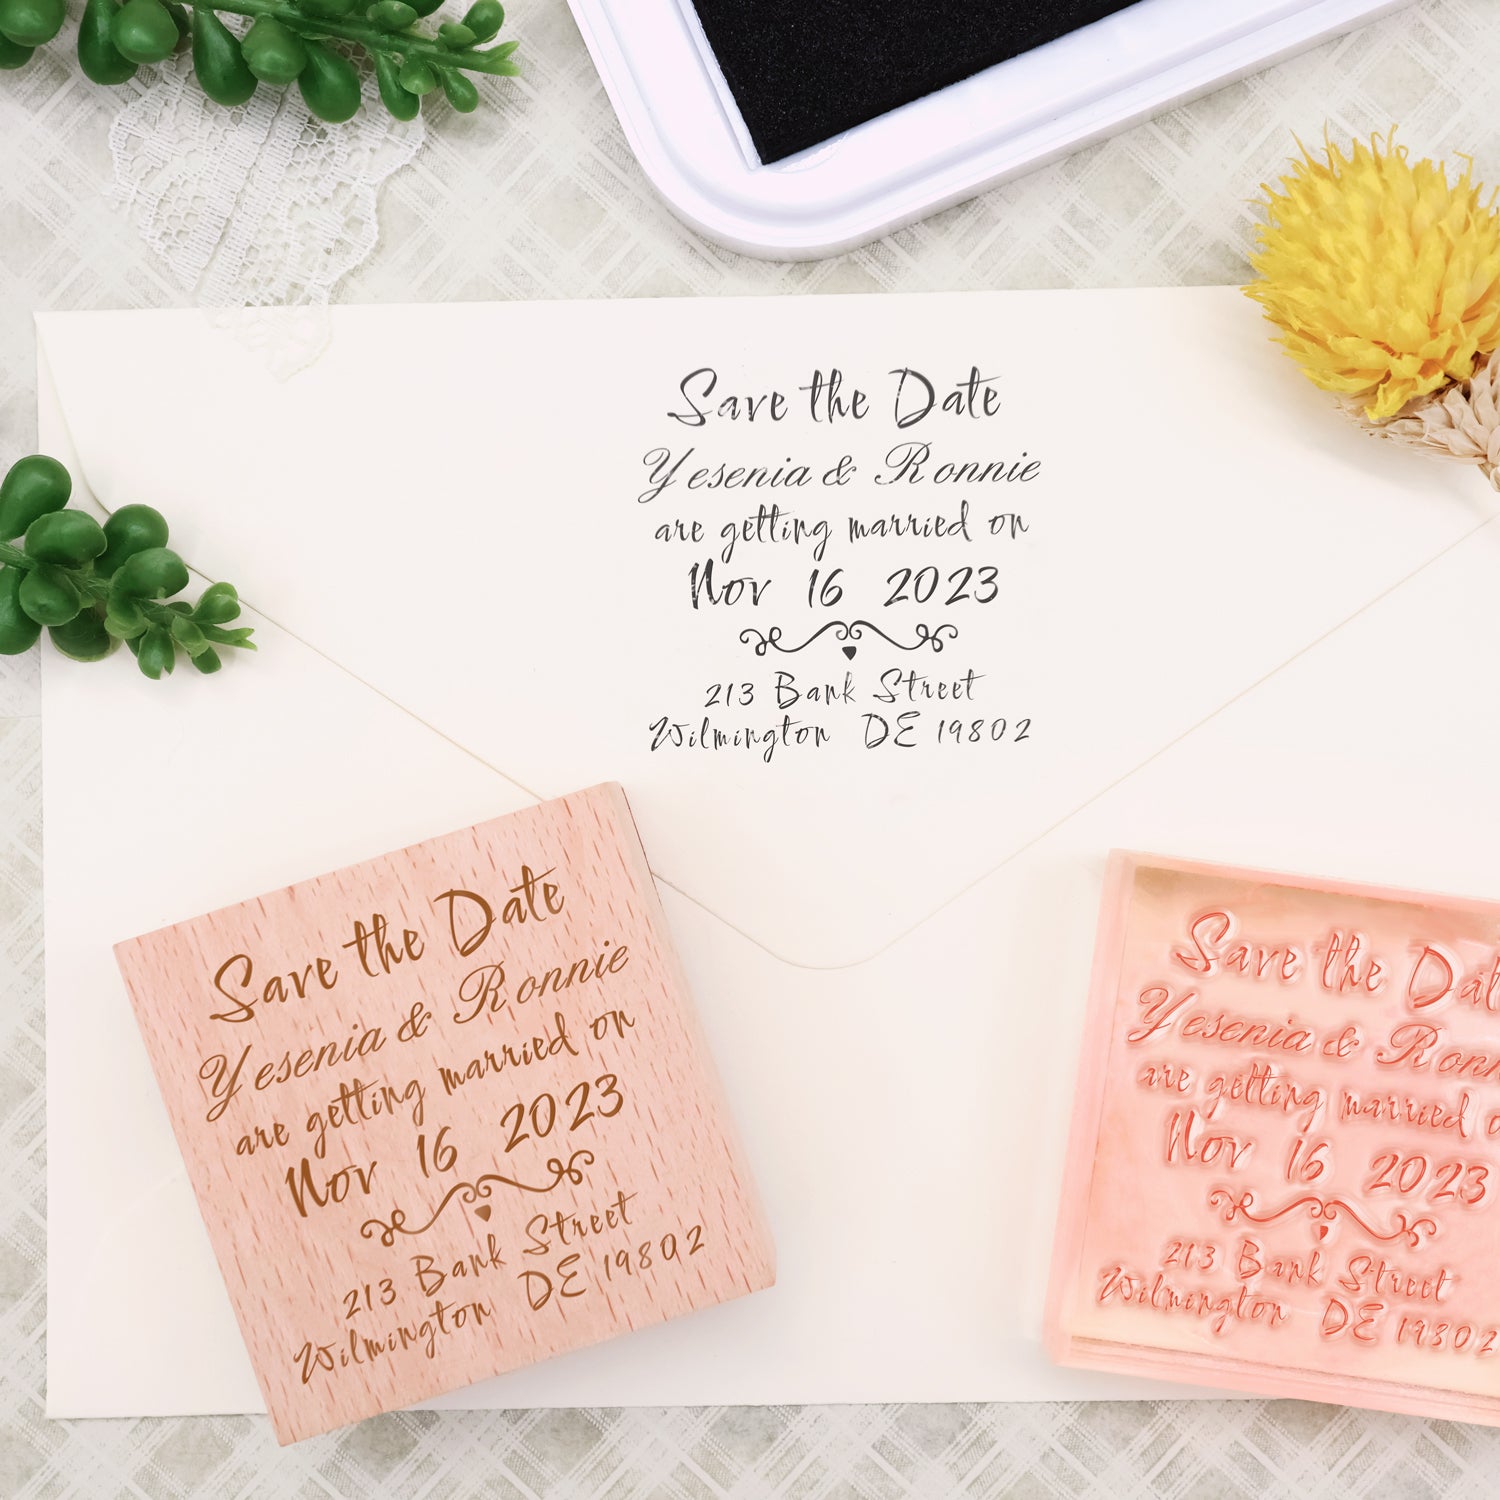 Save the Date
Yesenia & Ronnie
are getting married on
Nov 16 2023
213 Bank Street
Wilmington DE 19802
Save the Date
Yesenia & Ronnie
are getting married on
Nov 16 2023
213 Bank Street
Wilmington DE 19802
Save the Dat
Yesenia & Ronn
are getting married o
Nov 16 2023
213 Bank Street
Wilmington DE 19802